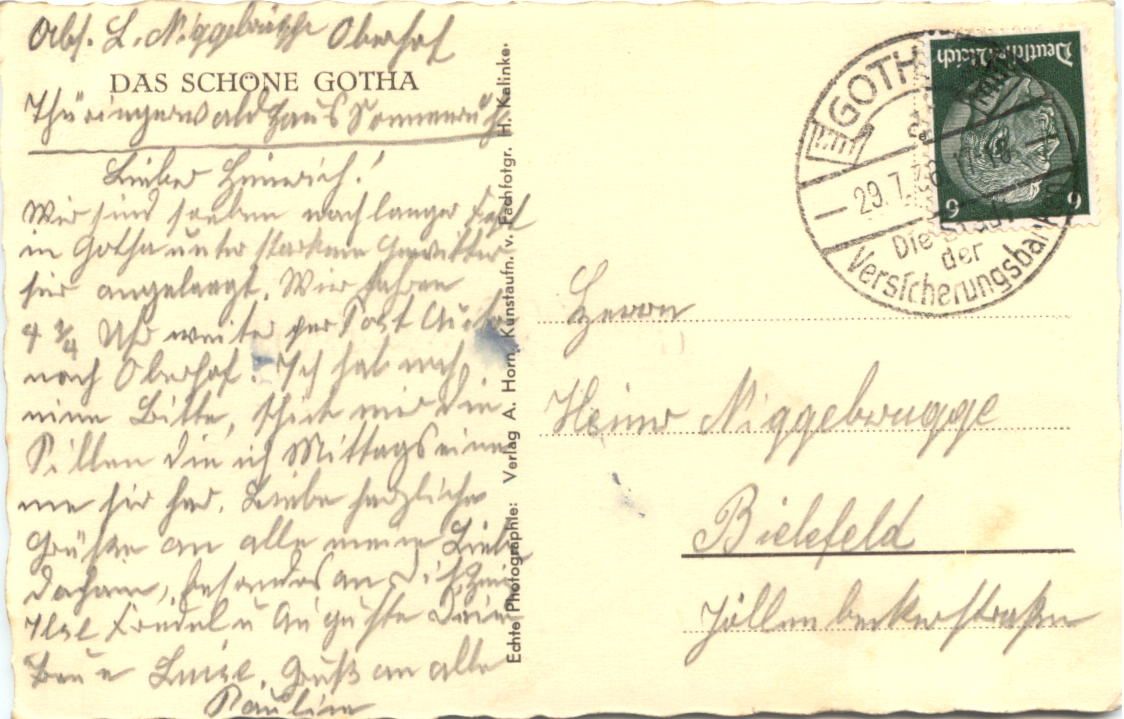 Abs. L. Niggebrügge Oberhof
DAS SCHÖNE GOTHA
Thüringerwald Haus Sonneneck
Lieber Heinrich!
Wir sind soeben nach langer Fahrt
in Gotha unter starkem Gewitter
hier angelangt. Wir fahren
4 3/4 Uhr weiter per Post Auto
nach Oberhof. Ich hab noch
eine Bitte, schick mir die
Pillen die ich Mittags ein
ne hier her. Liebe herzliche
Grüße an alle meine Liebe
daheim, besonders an Dich,
Ilse Friedel u Auguste
Luise. Gruß an alle
Pauline
Echte Photographie: Verlag A. Horn, Kunstaufn. v. Fachfotgr. H. Kalinke.
GOTHA
29.7.
Die Stadt
der
Versicherungsbanken
Deutsches Reich
6 6
Herrn
Heinr Niggebrugge
Bielefeld
Jöllenbeckerstraße